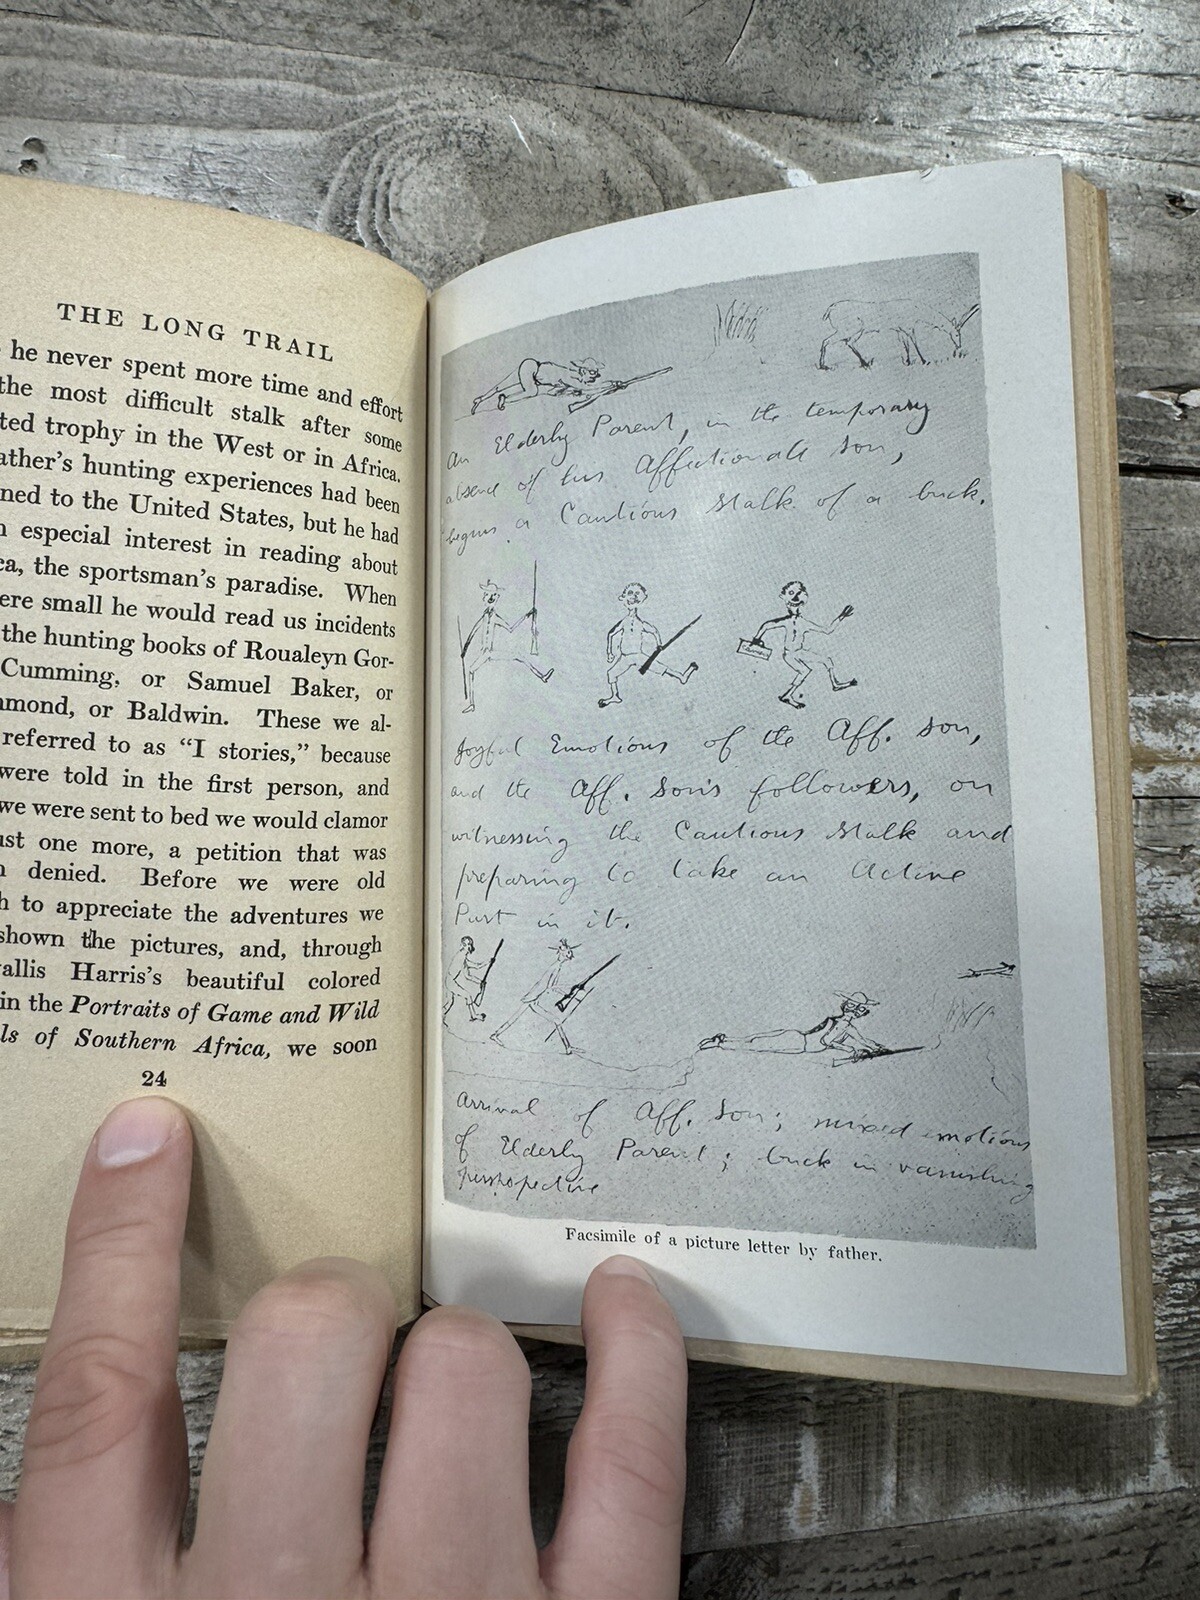 THE LONG TRAIL
he never spent more time and effort
the most difficult stalk after some
ted trophy in the West or in Africa.
ather's hunting experiences had been
ned to the United States, but he had
n especial interest in reading about
ca, the sportsman's paradise. When
ere small he would read us incidents
the hunting books of Roualeyn Gor-
Cumming, or Samuel Baker, or
mmond, or Baldwin. These we al-
referred to as "I stories," because
were told in the first person, and
we were sent to bed we would clamor
ust one more, a petition that was
n denied. Before we were old
h to appreciate the adventures we
shown the pictures, and, through
wallis Harris's beautiful colored
in the Portraits of Game and Wild
ls of Southern Africa, we soon
24
An Elderly Parent, in the temporary
absence of his Affectionate Son,
begins a Cautious Stalk of a buck.
Joyful Emotions of the Aff. Son,
and the Aff. Son's followers, on
witnessing the Cautious Stalk and
preparing to take an Active
Part in it.
Arrival of Aff. Son; mixed emotions
of Elderly Parent; buck in vanishing
perspective
Facsimile of a picture letter by father.